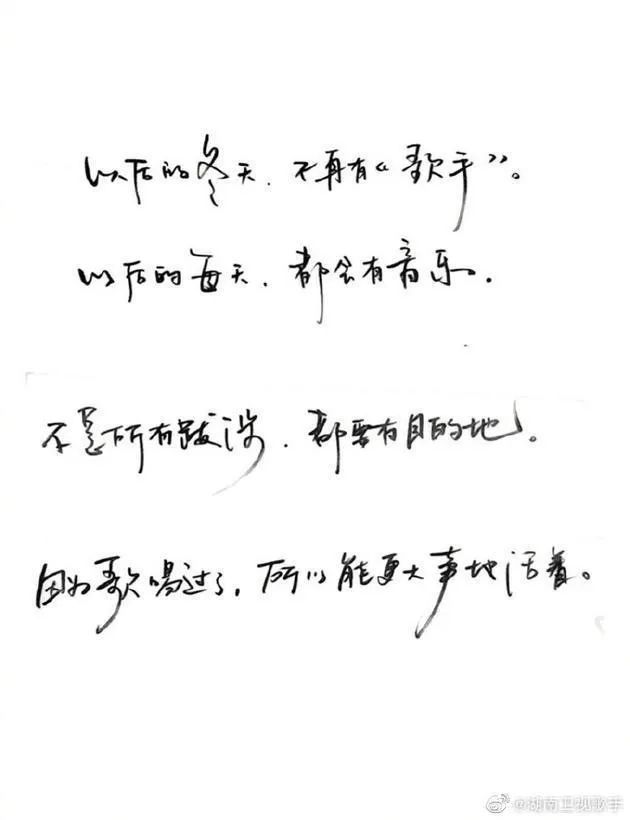 以后的冬天，不再有《歌手》。
以后的每天，都会有音乐．
不是所有跋涉，都要有目的地。
因为歌唱过了，所以能更大声地活着。
@湖南卫视歌手